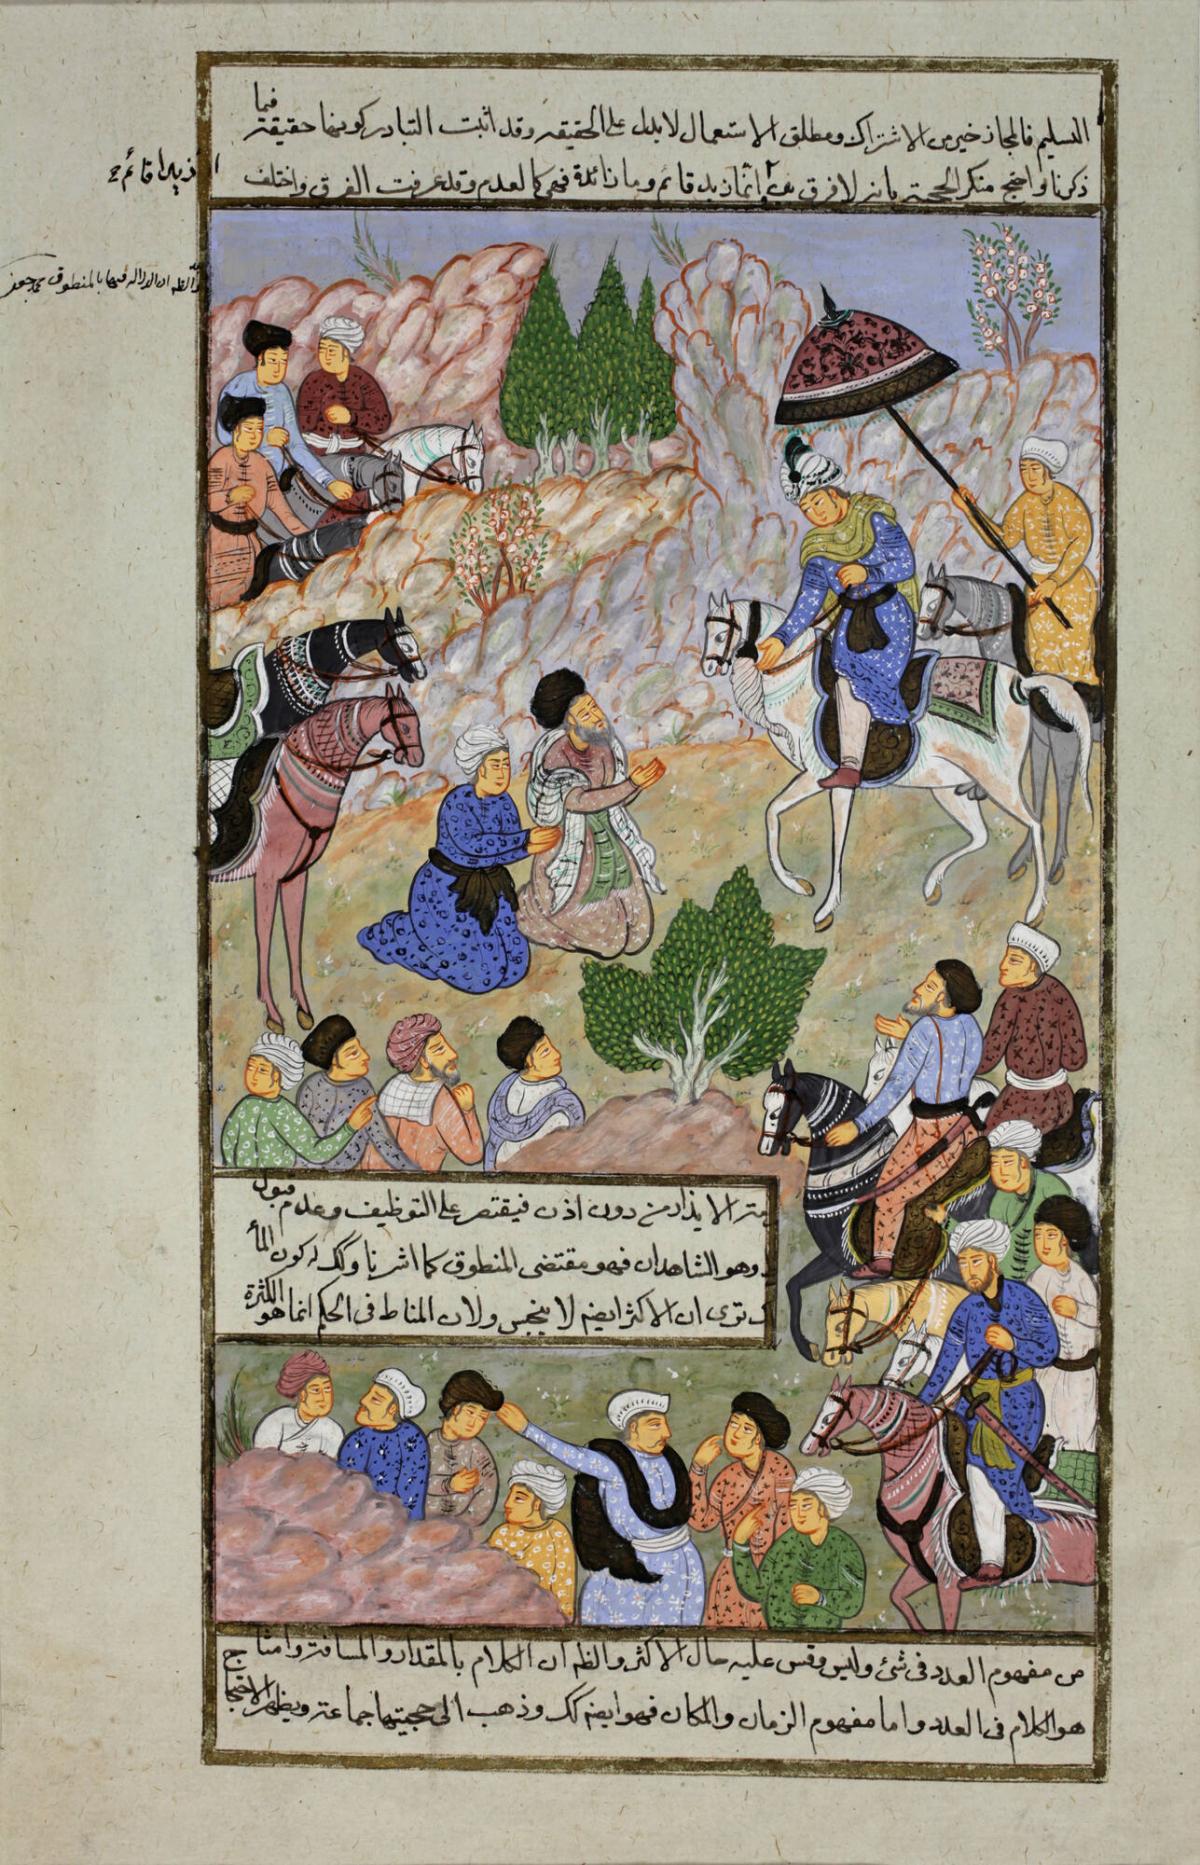 التسليم فالمجاز خير من الاشتراك ومطلق الاستعمال لا يدل على الحقيقه وقد اثبت التبادر كونها حقيقة فيما
ذكرنا واحتج منكر الحجية بانه لا فرق بين انما زيد قائم وما زائدة فهي كالعدم وقد عرفت الفرق واختلف
ان زيدا قائم
والظ ان الدلاله فيها بالمنطوق
الا بذار من دون اذن فيقتصر على التوظيف وعدم قبول
وهو الشاهدان فهو مقتضى المنطوق كما اشرنا وكك كون الماء
ترى ان الاكثر ايضا لا ينجس ولان المناط في الحكم انما هو الكثرة
من مفهوم العدد في شئ وليس وقس عليه حال الاكثر والظ ان الكلام بالمقدار والمسافة وامثا
هو الكلام في العدد واما مفهوم الزمان والمكان فهو ايضا كك وذهب الى حجيتهما جماعة ويظهر